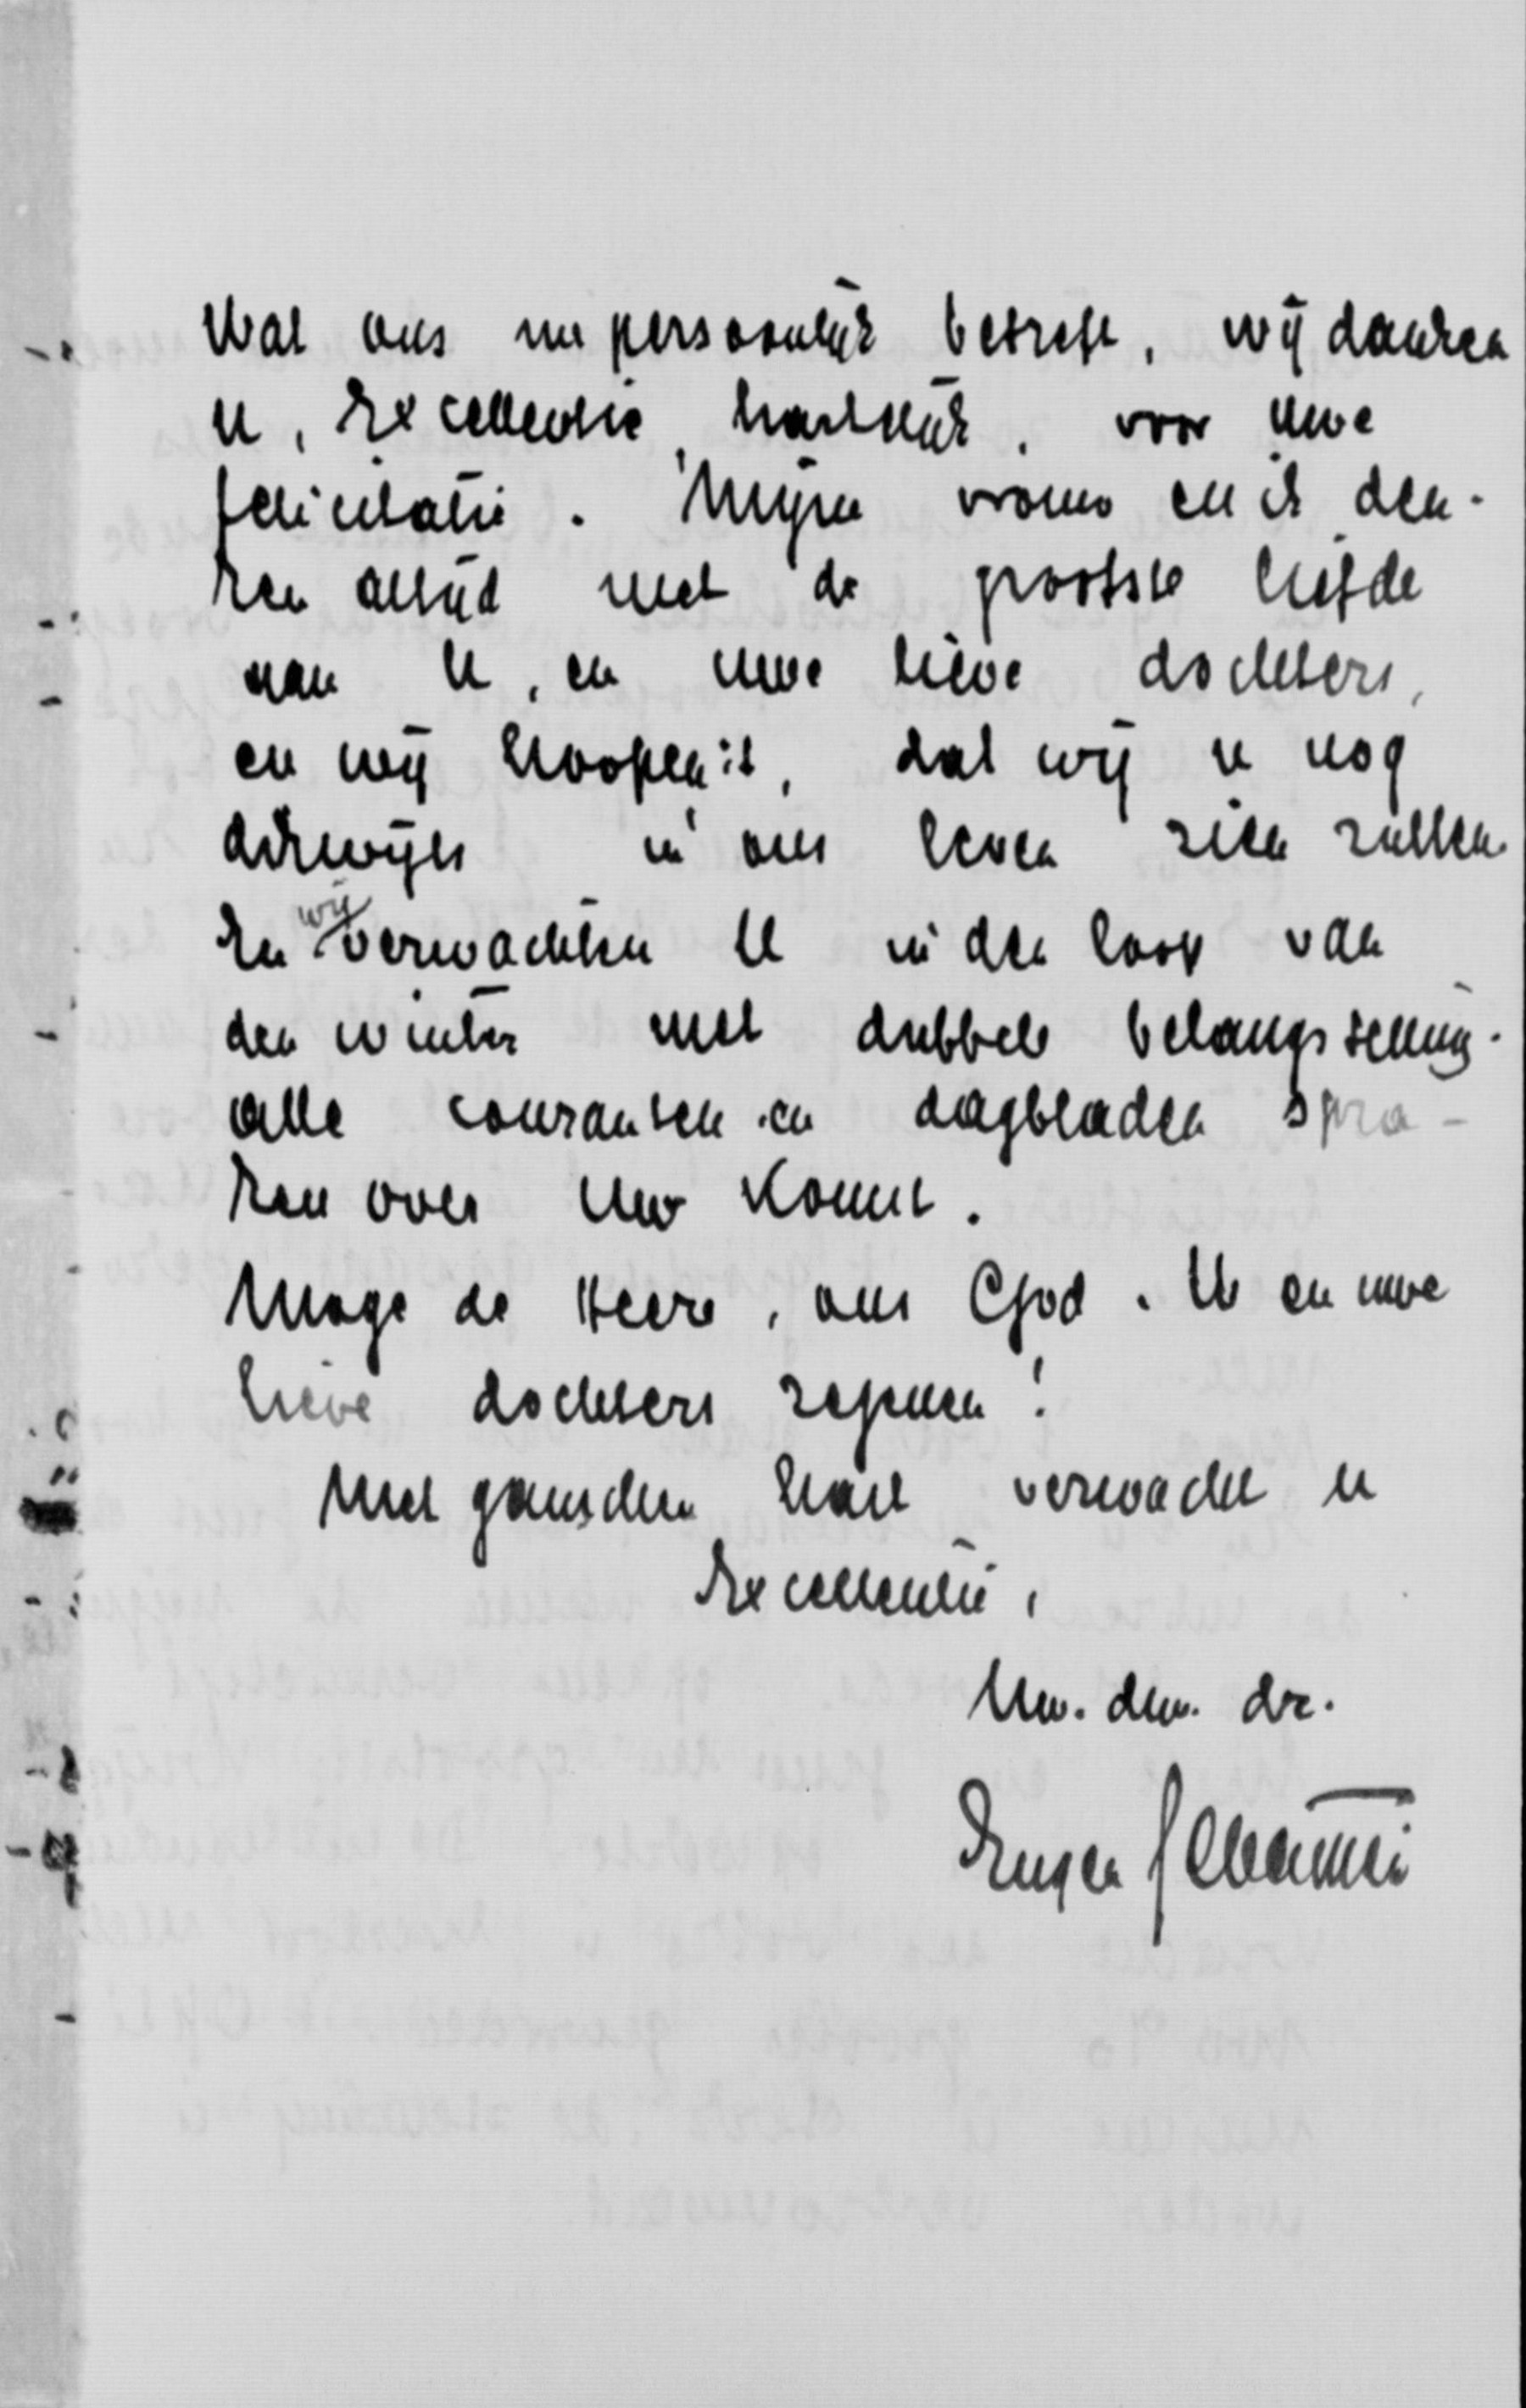 Wat ons nu persoonlijk betreft, wij danken
U, Excellentie, hartelijk, voor Uwe
felicitatie. Mijne vrouw en ik den-
ken altijd met de grootste liefde
aan U, en Uwe lieve dochters,
en wij hoopen it, dat wij U nog
dikwijls in ons leven zien zullen.
En wij verwachten U in den loop van
den winter met dubbele belangstelling.
alle couranten en dagbladen spra-
ken over Uw komst.
Moge de Heere, ons God, U en uwe
lieve dochters zegenen!
Met ganschen hart verwacht U
Excellentie,
Uw. dw. dr.
Eugen Sebestyén